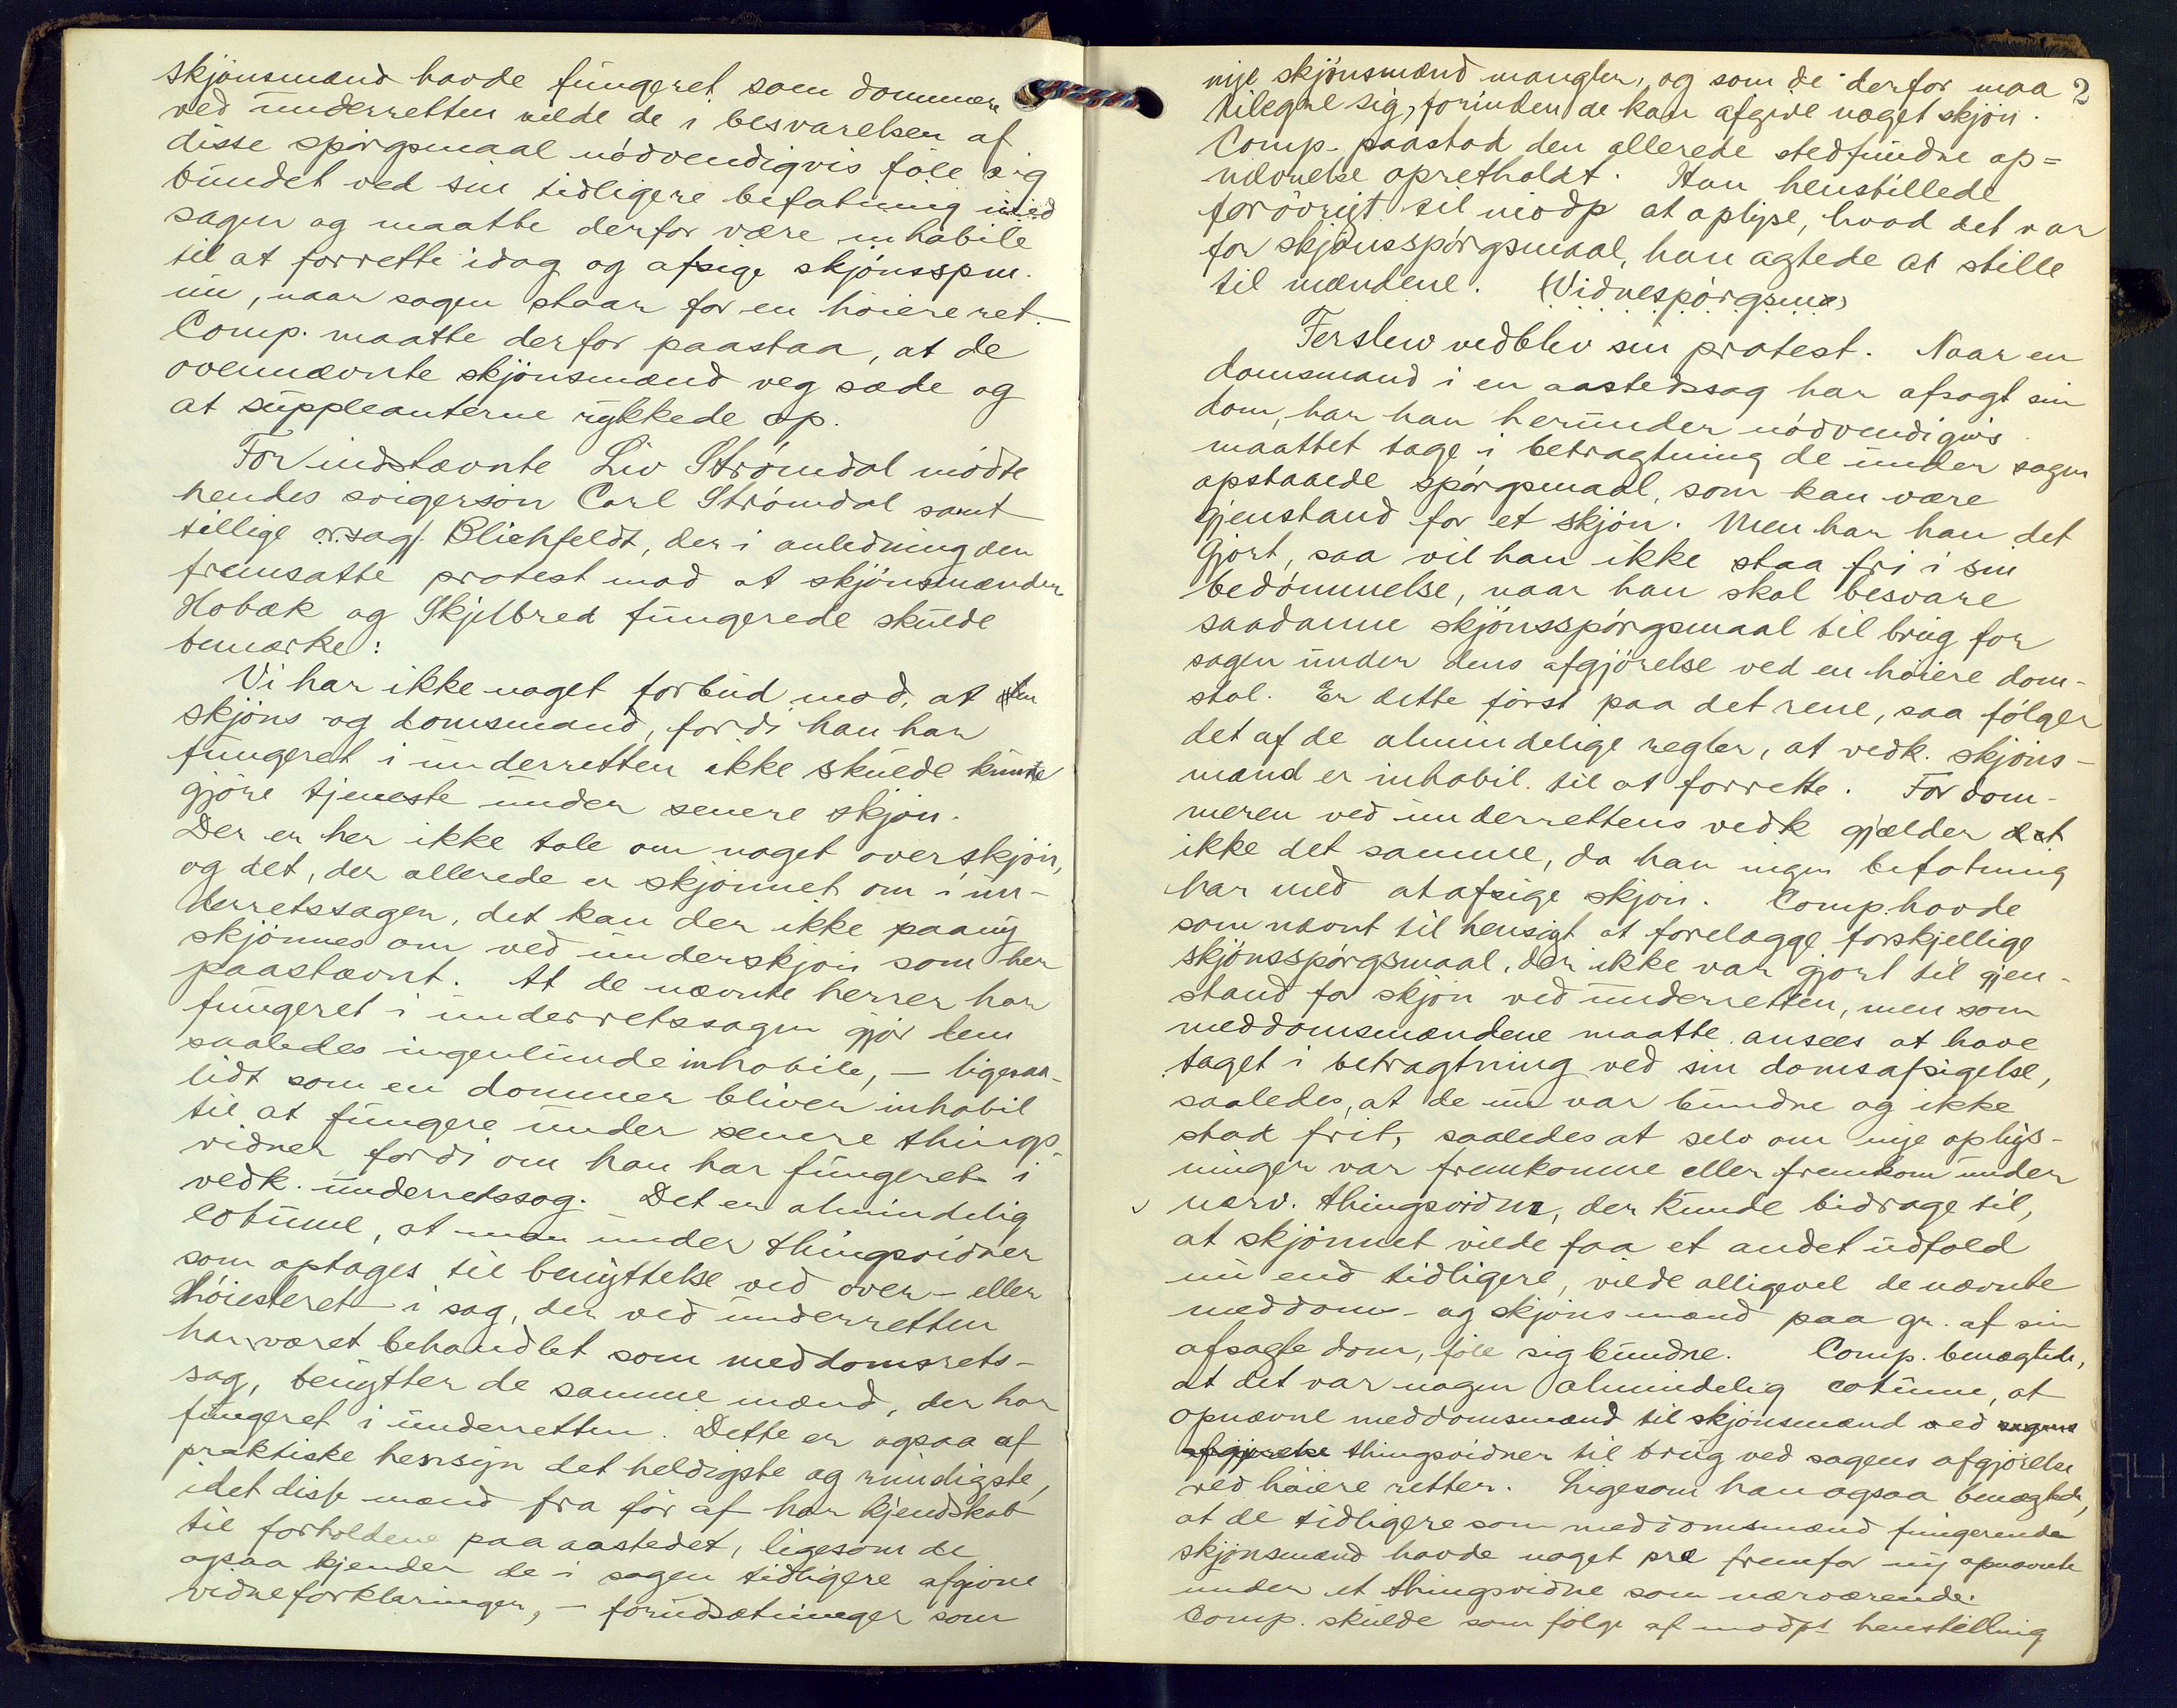 skjønsmænd havde fungeret som dommere
ved underretten vilde de i besvarelsen af
disse spørgsmaal nødvendigvis føle sig
bundet ved sin tidligere befatning med
sagen og maatte derfor være inhabile
til at forrette idag og afsige skjønsspm.
nu, naar sagen staar for en høiere ret.
Comp. maatte derfor paastaa, at de
ovennævnte skjønsmænd veg sæde og
at suppleanterne rykkede op.
For indstævnte Liv Strømdal mødte
hendes svigersøn Carl Strømdal samt
tillige o.r.sagf. Blichfeldt, der i anledning den
fremsatte protest mod at skjønsmænden
Hobæk og Skjelbred fungerede skulde
bemærke:
Vi har ikke noget forbud mod, at en
skjøns og domsmand, fordi han har
fungeret i underretten ikke skulde kunne
gjøre tjeneste under senere skjøn.
Der er her ikke tale om noget overskjøn,
og det, der allerede er skjønnet om i un-
derretssagen, det kan der ikke paany
skjønnes om ved underskjøn som her
paastævnt. At de nævnte herrer har
fungeret i underretssagen gjør dem
saaledes ingenlunde inhabile, – ligesaa-
lidt som en dommer bliver inhabil
til at fungere under senere things-
vidner fordi om han har fungeret i
vedk. underretssag. Det er almindelig
cotume, at man under thingsvidner
som optages til benyttelse ved over- eller
Høiesteret i sag, der ved underretten
har været behandlet som meddomsrets-
sag, benytter de samme mænd, der har
fungeret i underretten. Dette er ogsaa af
praktiske hensyn det heldigste og rimeligste,
idet disse mænd fra før af har kjendskab
til forholdene paa aastedet, ligesom de
ogsaa kjender de i sagen tidligere afgivne
vidneforklaringer, – forudsætninger som
2
nye skjønsmænd mangler, og som de derfor maa
tilegne sig, forinden de kan afgive noget skjøn.
Comp. paastod den allerede stedfundne op=
nævnelse opretholdt. Han henstillede
forøvrigt til modp at oplyse, hvad det var
for skjønsspørgsmaal, han agtede at stille
til mændene. (Vidnespørgsm.)
Ferslew vedblev sin protest. Naar en
domsmand i en aastedssag har afsagt sin
dom, har han herunder nødvendigvis
maattet tage i betragtning de under sagen
opstaaede spørgsmaal, som kan være
gjenstand for et skjøn. Men har han det
gjort, saa vil han ikke staa fri i sin
bedømmelse, naar han skal besvare
saadanne skjønsspørgsmaal til brug for
sagen under dens afgjørelse ved en høiere dom-
stol. Er dette først paa det rene, saa følger
det af de almindelige regler, at vedk. skjøns-
mand er inhabil til at forrette. For dom-
meren ved underrettens vedk gjælder det
ikke det samme, da han ingen befatning
har med at afsige skjøn. Comp. havde
som nævnt til hensigt at forelægge forskjellige
skjønsspørgsmaal, der ikke var gjort til gjen-
stand for skjøn ved underretten, men som
meddomsmændene maatte ansees at have
taget i betragtning ved sin domsafsigelse,
saaledes, at de nu var bundne og ikke
stod frit, saaledes at selv om nye oplys-
ninger var fremkomne eller fremkom under
nærv. thingsvidne, der kunde bidrage til,
at skjønnet vilde faa et andet udfald
nu end tidligere, vilde alligevel de nævnte
meddoms- og skjønsmænd paa gr. af sin
afsagte dom, føle sig bundne. Comp. benægtede,
at det var nogen almindelig cotume, at
opnævne meddomsmænd til skjønsmænd ved sagens
afgjørelse thingsvidner til brug ved sagens afgjørelse
ved høiere retter. Ligesom han ogsaa benægtede,
at de tidligere som meddomsmænd fungerende
skjønsmænd havde noget præ fremfor ny opnævnte
under et thingsvidne som nærværende.
Comp. skulde som følge af modpts henstilling